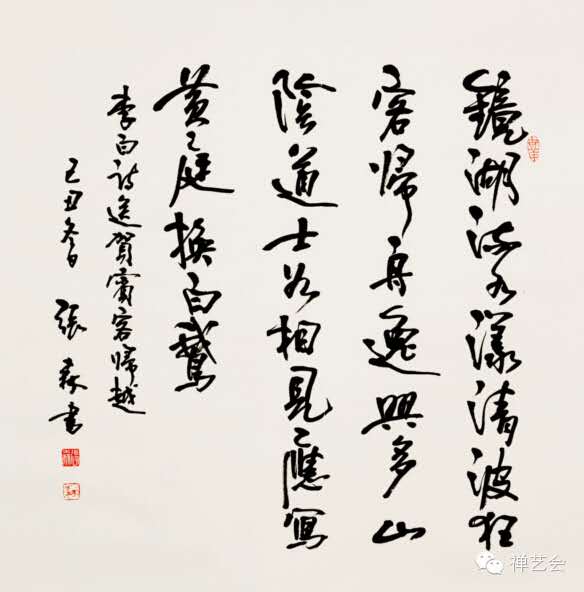 鏡湖流水漾清波狂
客歸舟逸興多山
陰道士如相見應寫
黄庭換白鵝
李白詩送賀賓客歸越
己丑 張森書
禅艺会